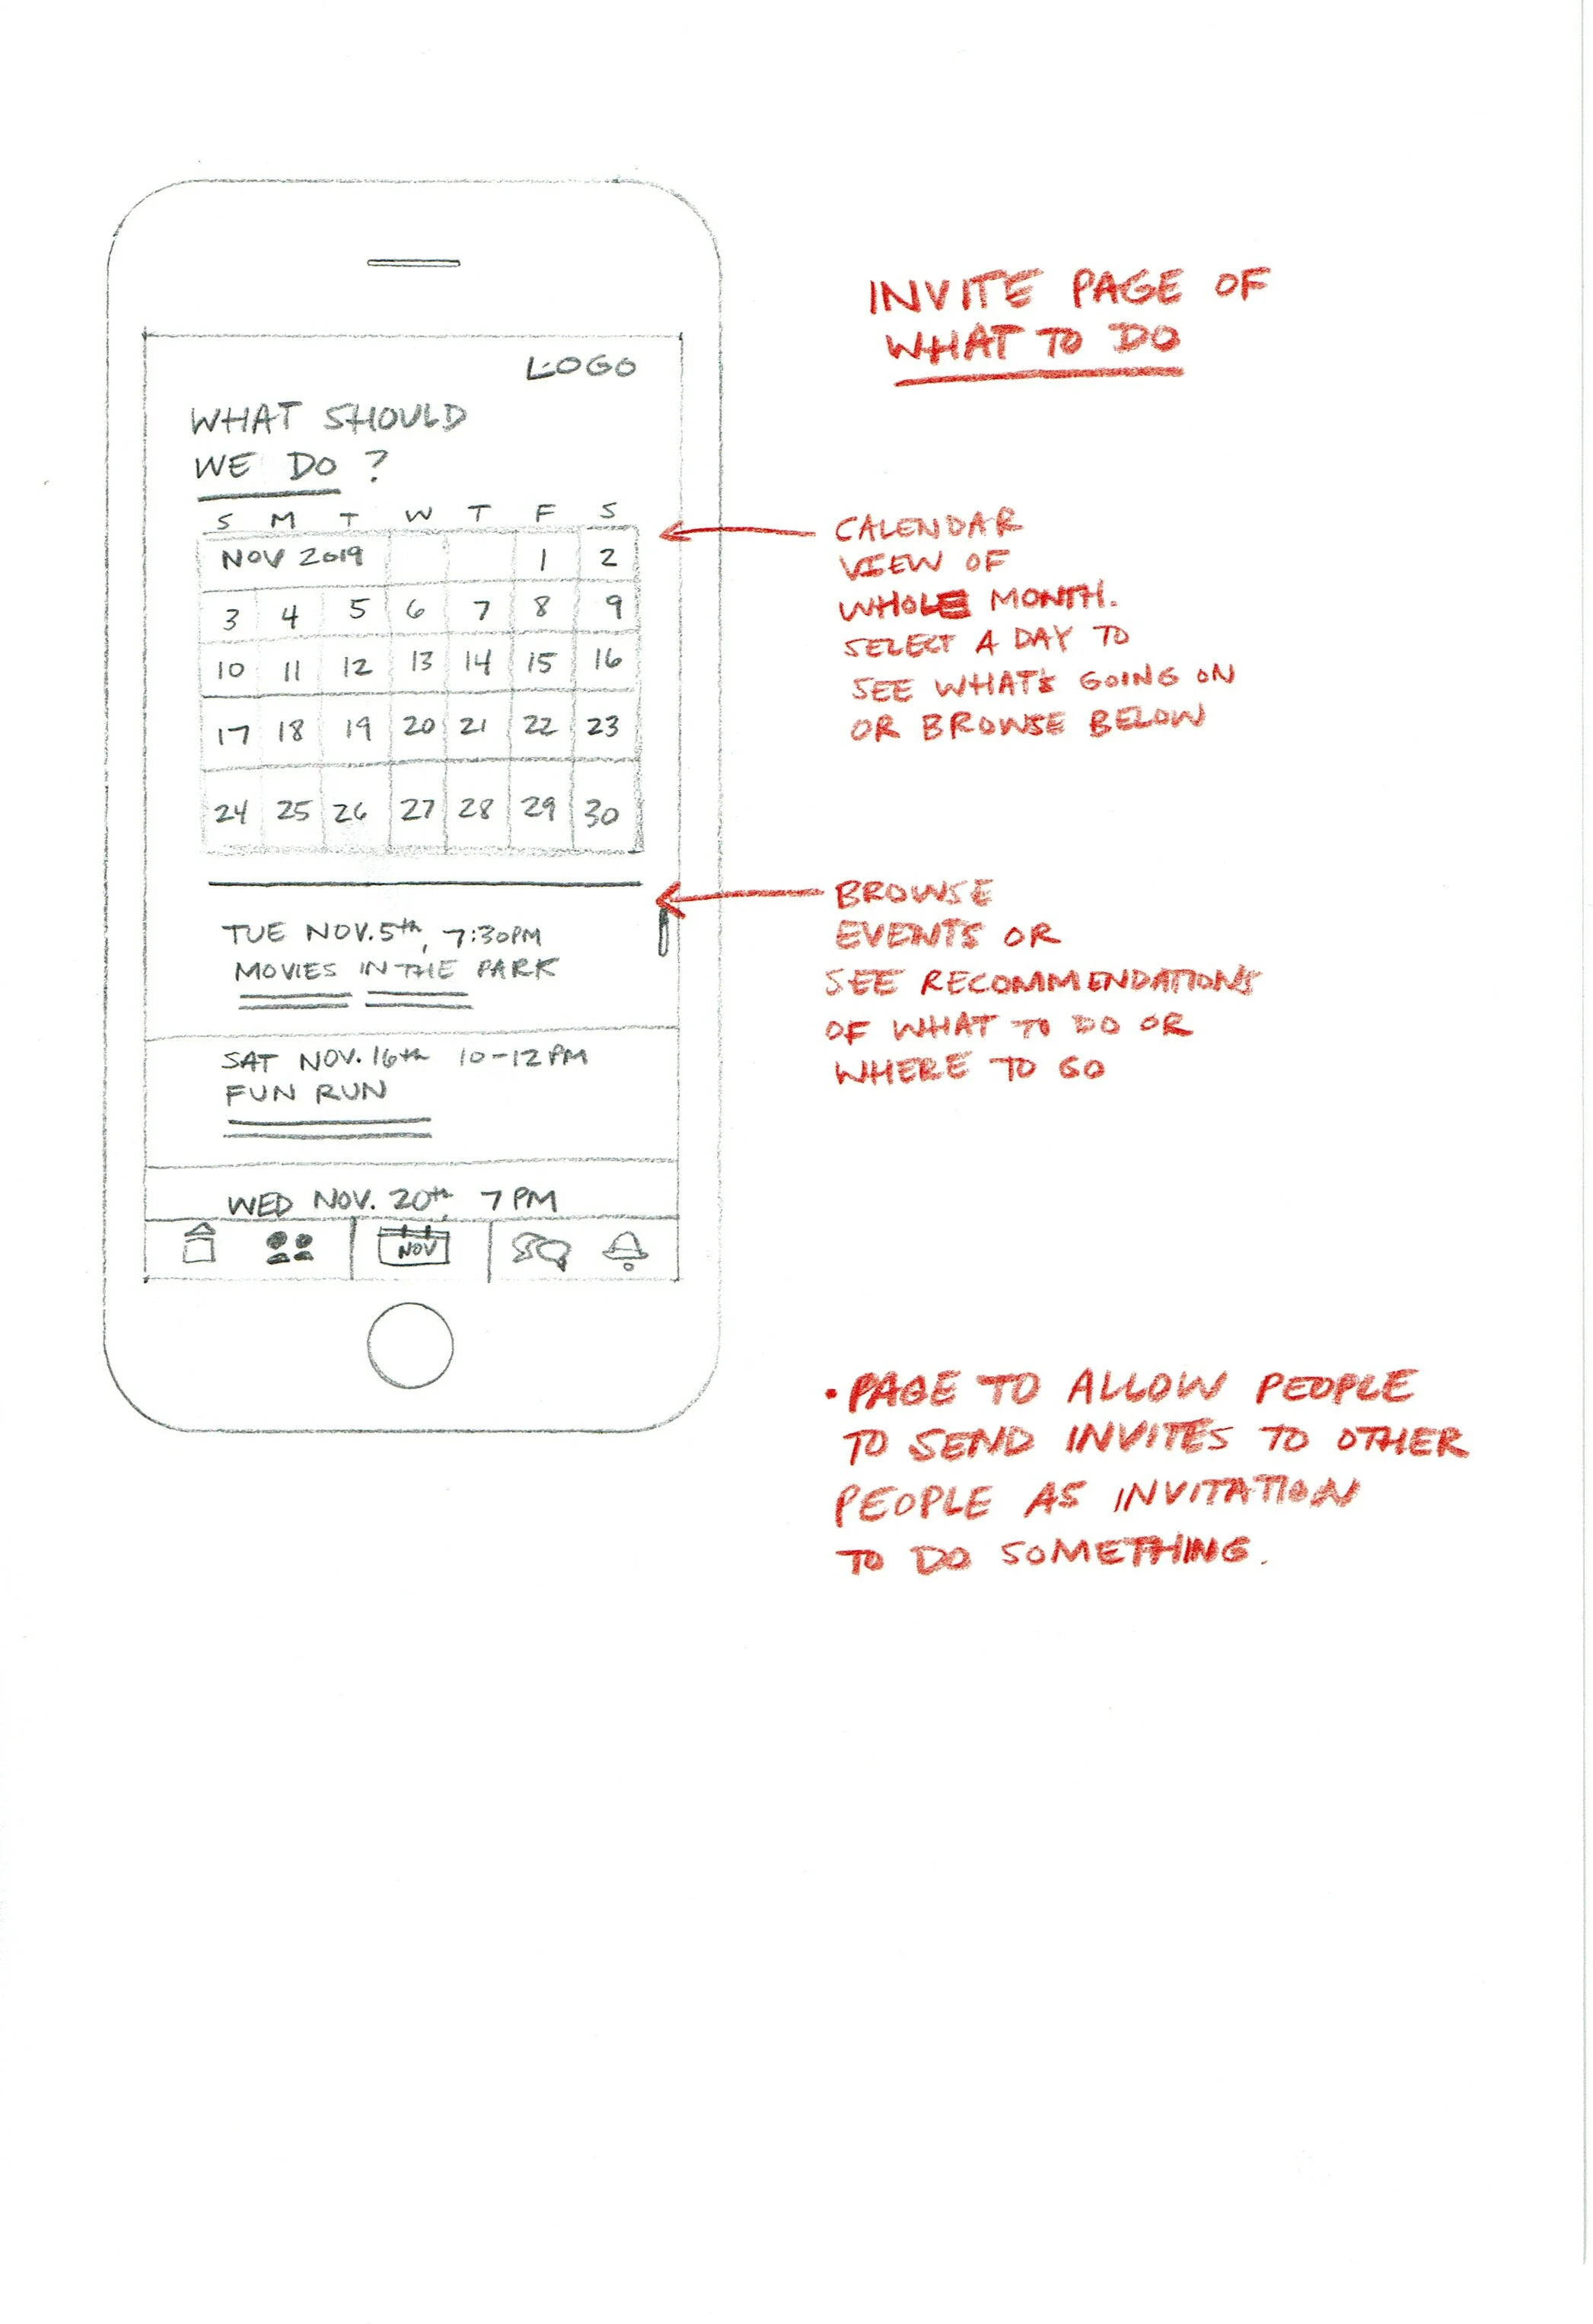 LOGO
WHAT SHOULD
WE DO ?
S M T W T F S
NOV 2019 1 2
3 4 5 6 7 8 9
10 11 12 13 14 15 16
17 18 19 20 21 22 23
24 25 26 27 28 29 30
TUE NOV. 5th, 7:30PM
MOVIES IN THE PARK
SAT NOV. 16th 10-12PM
FUN RUN
WED NOV. 20th, 7PM
NOV
INVITE PAGE OF
WHAT TO DO
CALENDAR
VIEW OF
WHOLE MONTH.
SELECT A DAY TO
SEE WHAT'S GOING ON
OR BROWSE BELOW
BROWSE
EVENTS OR
SEE RECOMMENDATIONS
OF WHAT TO DO OR
WHERE TO GO
• PAGE TO ALLOW PEOPLE
TO SEND INVITES TO OTHER
PEOPLE AS INVITATION
TO DO SOMETHING.